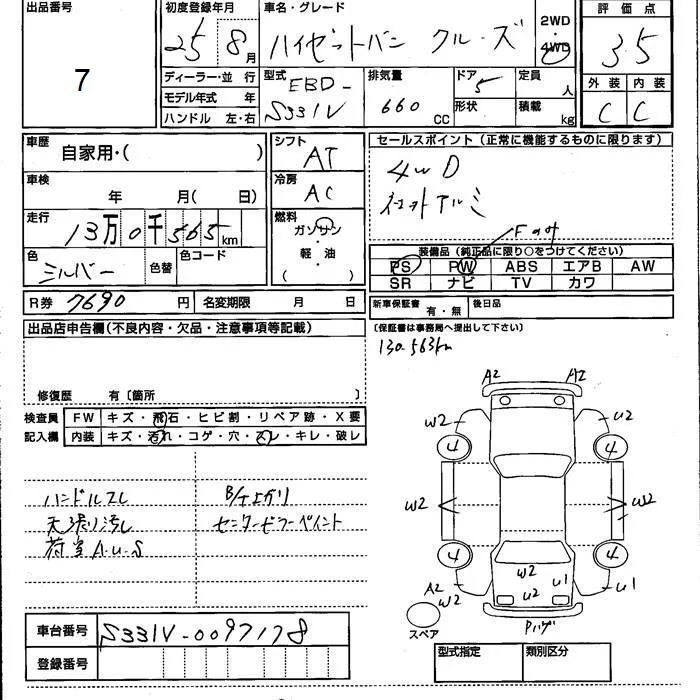 出品番号
7
初度登録年月
25 8月
車名・グレード
ハイゼットバン クルーズ
2WD
4WD
評価点
3.5
外装 内装
C C
ディーラー・並行
モデル年式 年
ハンドル 左・右
型式
EBD-
S331V
排気量
660 CC
ドア 5
形状
定員 人
積載 kg
車歴
自家用・( )
車検
年 月( 日)
走行
13万0千565km
色
シルバー
色替
色コード
シフト
AT
冷房
AC
燃料
ガソリン
・
軽・油
( )
セールスポイント(正常に機能するものに限ります)
4WD
社外アルミ
Fのみ
装備品(純正品に限り○をつけてください)
PS PW ABS エアB AW
SR ナビ TV カワ
R券 7690 円
名変期限 月 日
新車保証書 有・無
後日品
(保証書は事務局へ提出して下さい)
130.563km
出品店申告欄(不良内容・欠品・注意事項等記載)
修復歴 有〔箇所 〕
検査員
記入欄
FW キズ・飛石・ヒビ割・リペア跡・X要
内装 キズ・汚れ・コゲ・穴・スレ・キレ・破レ
ハンドルスレ
天張り汚し
荷室A.U.S
B/下上がり
センターピラーペイント
A2 A2
W2 U2
4 4
W2 W2
4 4
W2 U1
U2
A2
W2 U1
スペア
Pハゲ
車台番号 S331V-0097178
登録番号
型式指定 類別区分